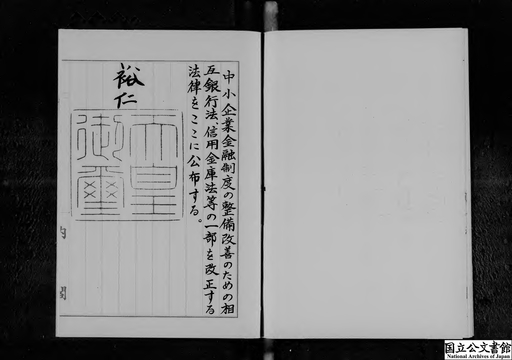 中小企業金融制度の整備改善のための相
互銀行法、信用金庫法等の一部を改正する
法律をここに公布する。
裕仁
天皇
御璽
内
閣
国立公文書館
National Archives of Japan